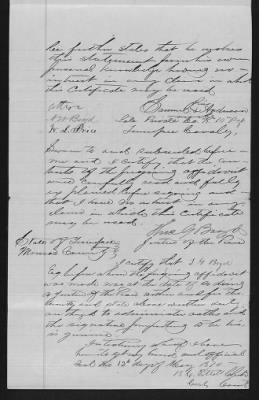 he further states that he makes
this statement from his own
personal knowledge having no
interest in any claim in which
this Certificate may be used
Samuel Anderson
N W Boyd Late Private Co 10 Reg
W. S. Price Tennessee Cavalry
Sworn to and subscribed before
me and I certify that the contents
of the foregoing affidavit
was carefully read and fully
explained before signing and
that I have no interest in any
claim in which this Certificate
may be used.
Justice of the Peace
State of Tennessee
Monroe County
I certify that
Esq before whom the foregoing affidavit
was made was at the date of so doing
a Justice of the Peace within and for the
County and State above written duly
authorized to administer oaths and
the signature purporting to be his is
genuine
In testimony whereof I have
hereunto set my hand and official
seal the 12th day of May
Clerk
Court